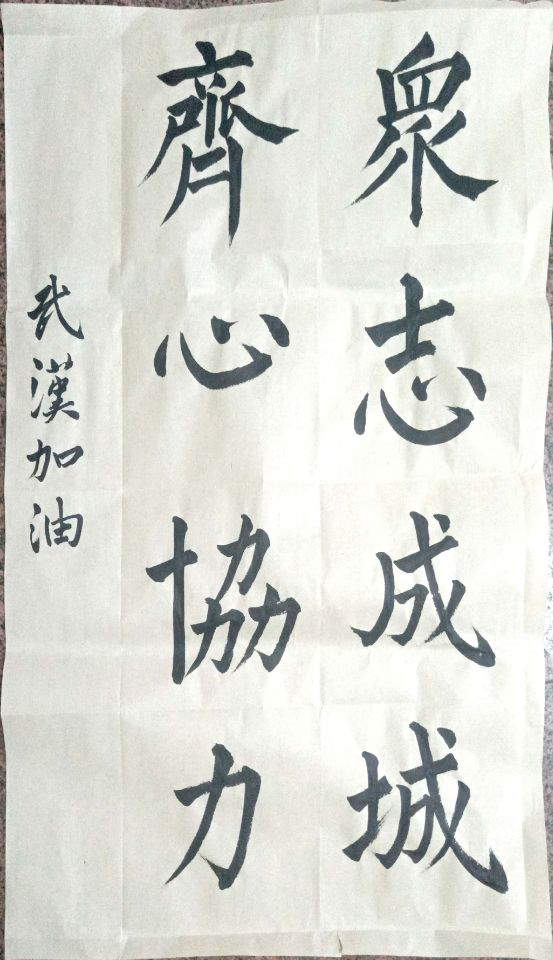 眾志成城
齊心協力
武漢加油